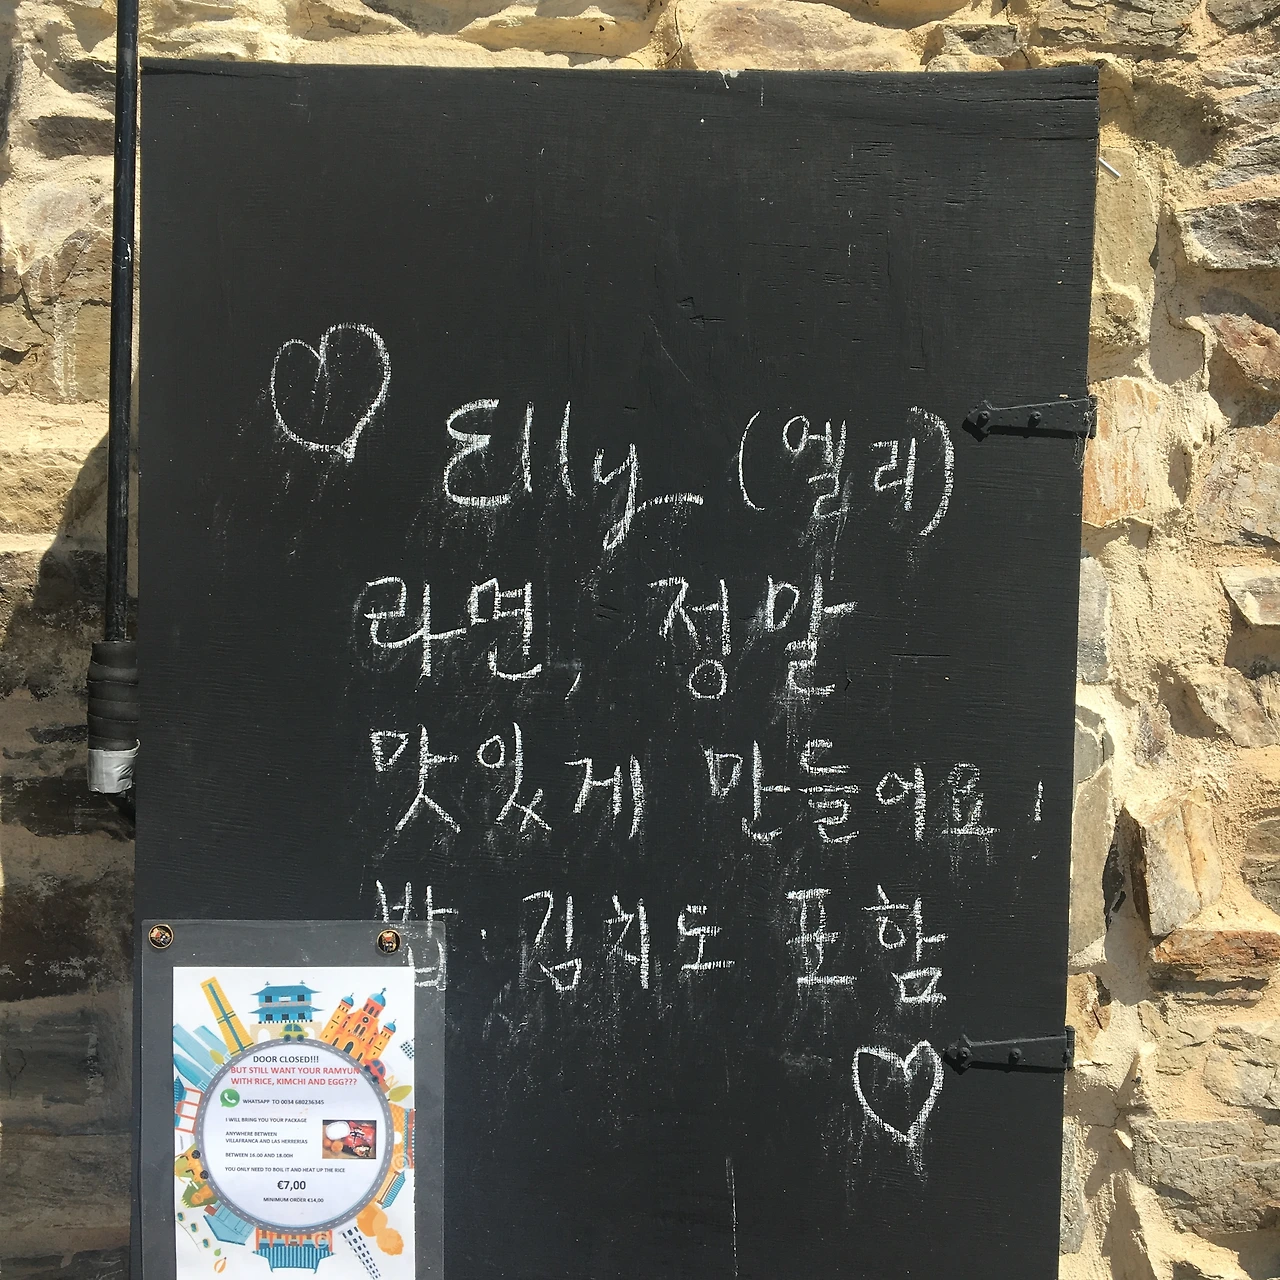 Elly (엘리)
라면, 정말
맛있게 만들어요!
밥·김치도 포함
DOOR CLOSED!!!
BUT STILL WANT YOUR RAMYUN
WITH RICE, KIMCHI AND EGG???
WHATSAPP TO 0034 680236345
I WILL BRING YOU YOUR PACKAGE
ANYWHERE BETWEEN
VILLAFRANCA AND LAS HERRERIAS
BETWEEN 16.00 AND 18.00H
YOU ONLY NEED TO BOIL IT AND HEAT UP THE RICE
€7,00
MINIMUM ORDER €14,00